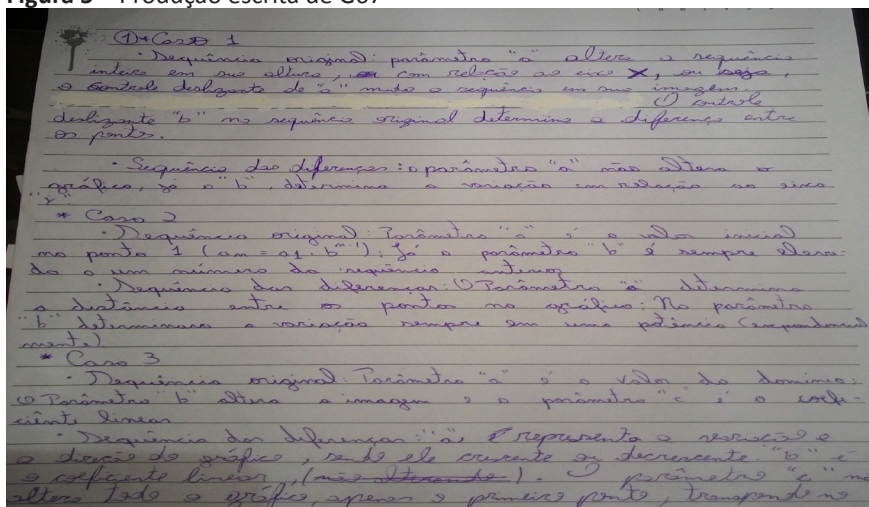 Figura 5 – Produção escrita de G07
① * Caso 1
• Sequência original: parâmetro "a" altera a sequência
inteira em sua altura, com relação ao eixo X, ou seja,
o controle deslizante de "a" muda a sequência em sua imagem.
O controle
deslizante "b" na sequência original determina a diferença entre
os pontos.
• Sequência das diferenças: o parâmetro "a" não altera o
gráfico, já o "b", determina a variação em relação ao eixo
"x"
* Caso 2
• Sequência original: Parâmetro "a" é o valor inicial
no ponto 1 (an = a1 . b^n-1); Já o parâmetro "b" é sempre eleva-
do a um número da sequência anterior
• Sequência das diferenças: O Parâmetro "a" determina
a distância entre os pontos no gráfico: No parâmetro
"b" determinara a variação sempre em uma potência (exponencial
mente)
* Caso 3
• Sequência original: Parâmetro "a" é o valor do domínio;
O Parâmetro "b" altera a imagem e o parâmetro "c" é o coefi-
ciênte linear
• Sequência das diferenças: "a" representa a variação e
a direção do gráfico, sendo ele crescente ou decrescente. "b" é
o coeficiente linear, (não alterando). O parâmetro "c" não
altera todo o gráfico, apenas o primeiro ponto, transpondo no